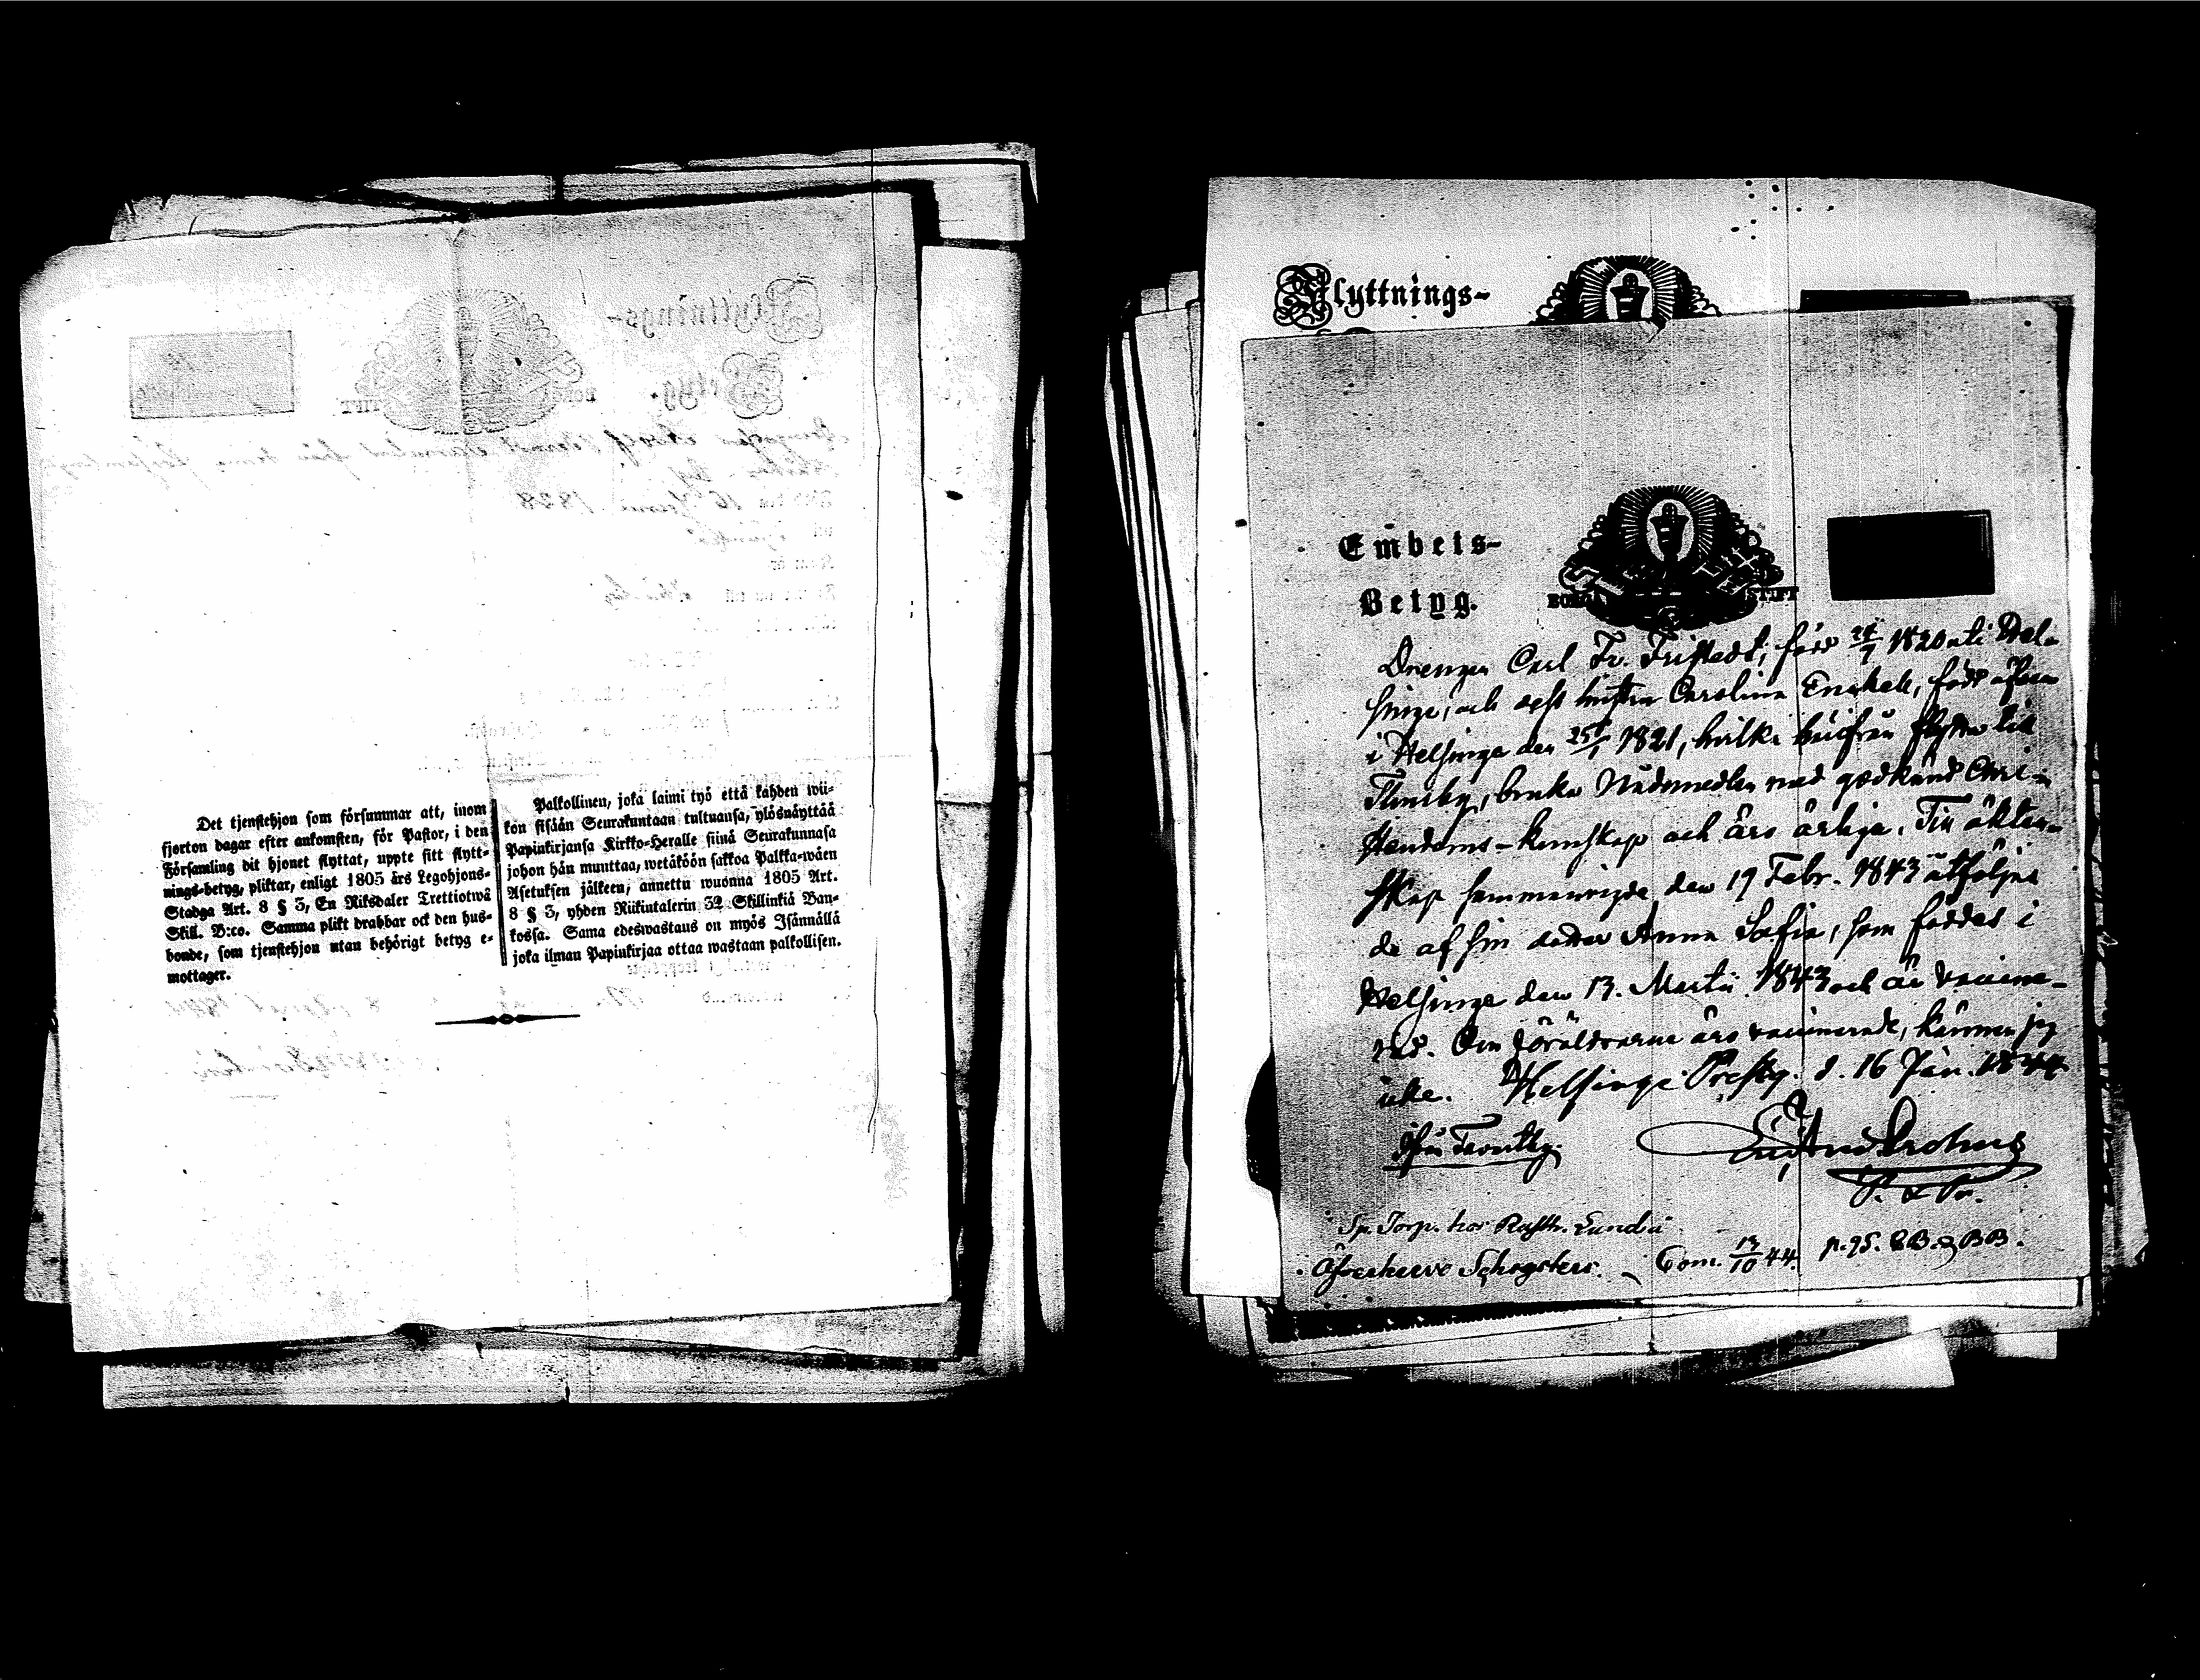 Det tjenstehjon som försummar att, inom
fjorton dagar efter ankomsten, för Pastor, i den
Församling dit hjonet flyttat, uppte sitt flytt-
nings-betyg, pliktar, enligt 1805 års Legohjons-
Stadga Art. 8 § 3, En Riksdaler Trettiotwå
Skill. B:co. Samma plikt drabbar ock den hus-
bonde, som tjenstehjon utan behörigt betyg e-
mottager.
Palkollinen, joka laimi lyö että kahden wii-
kon sisään Seurakuntaan tultuansa, ylösnäyttää
Papinkirjansa Kirkko-Heralle siinä Seurakunnasa
johon hän muuttaa, wetäköön sakkoa Palkka-wäen
Asetuksen jälkeen, annettu wuonna 1805 Art.
8 § 3, yhden Riikintalerin 32 Skillinkiä Ban-
kossa. Sama edeswastaus on myös Isännällä
joka ilman Papinkirjaa ottaa wastaan palkollisen.
Flyttnings-
Embets-
Betyg.
BORGÅ STIFT
Drengen Carl Fr. Fristedt, född 1820 uti Hel-
singe, och dess hustru Carolina Enskale, född äfven
i Helsinge den 1821, hvilka härifrån flytta till
Thusby, bruka Nådemedlen med godkänd Chri-
stendoms-kunskap och äro ärliga. Till äkten-
skap sammanvigde den 19 Febr. 1843 åtföljas
de af sin dotter Anna Sofia, som föddes i
Helsinge den 13. Martii 1843 och är vaccine-
rad. Om föräldrarne äro vaccinerade, känner jag
icke. Helsinge Prestg. d. 16 Jan. 1844.
P. & Pr.
Sp. Torp. hos Rusth. Lundia
Com. 13/10 44. p. 95.